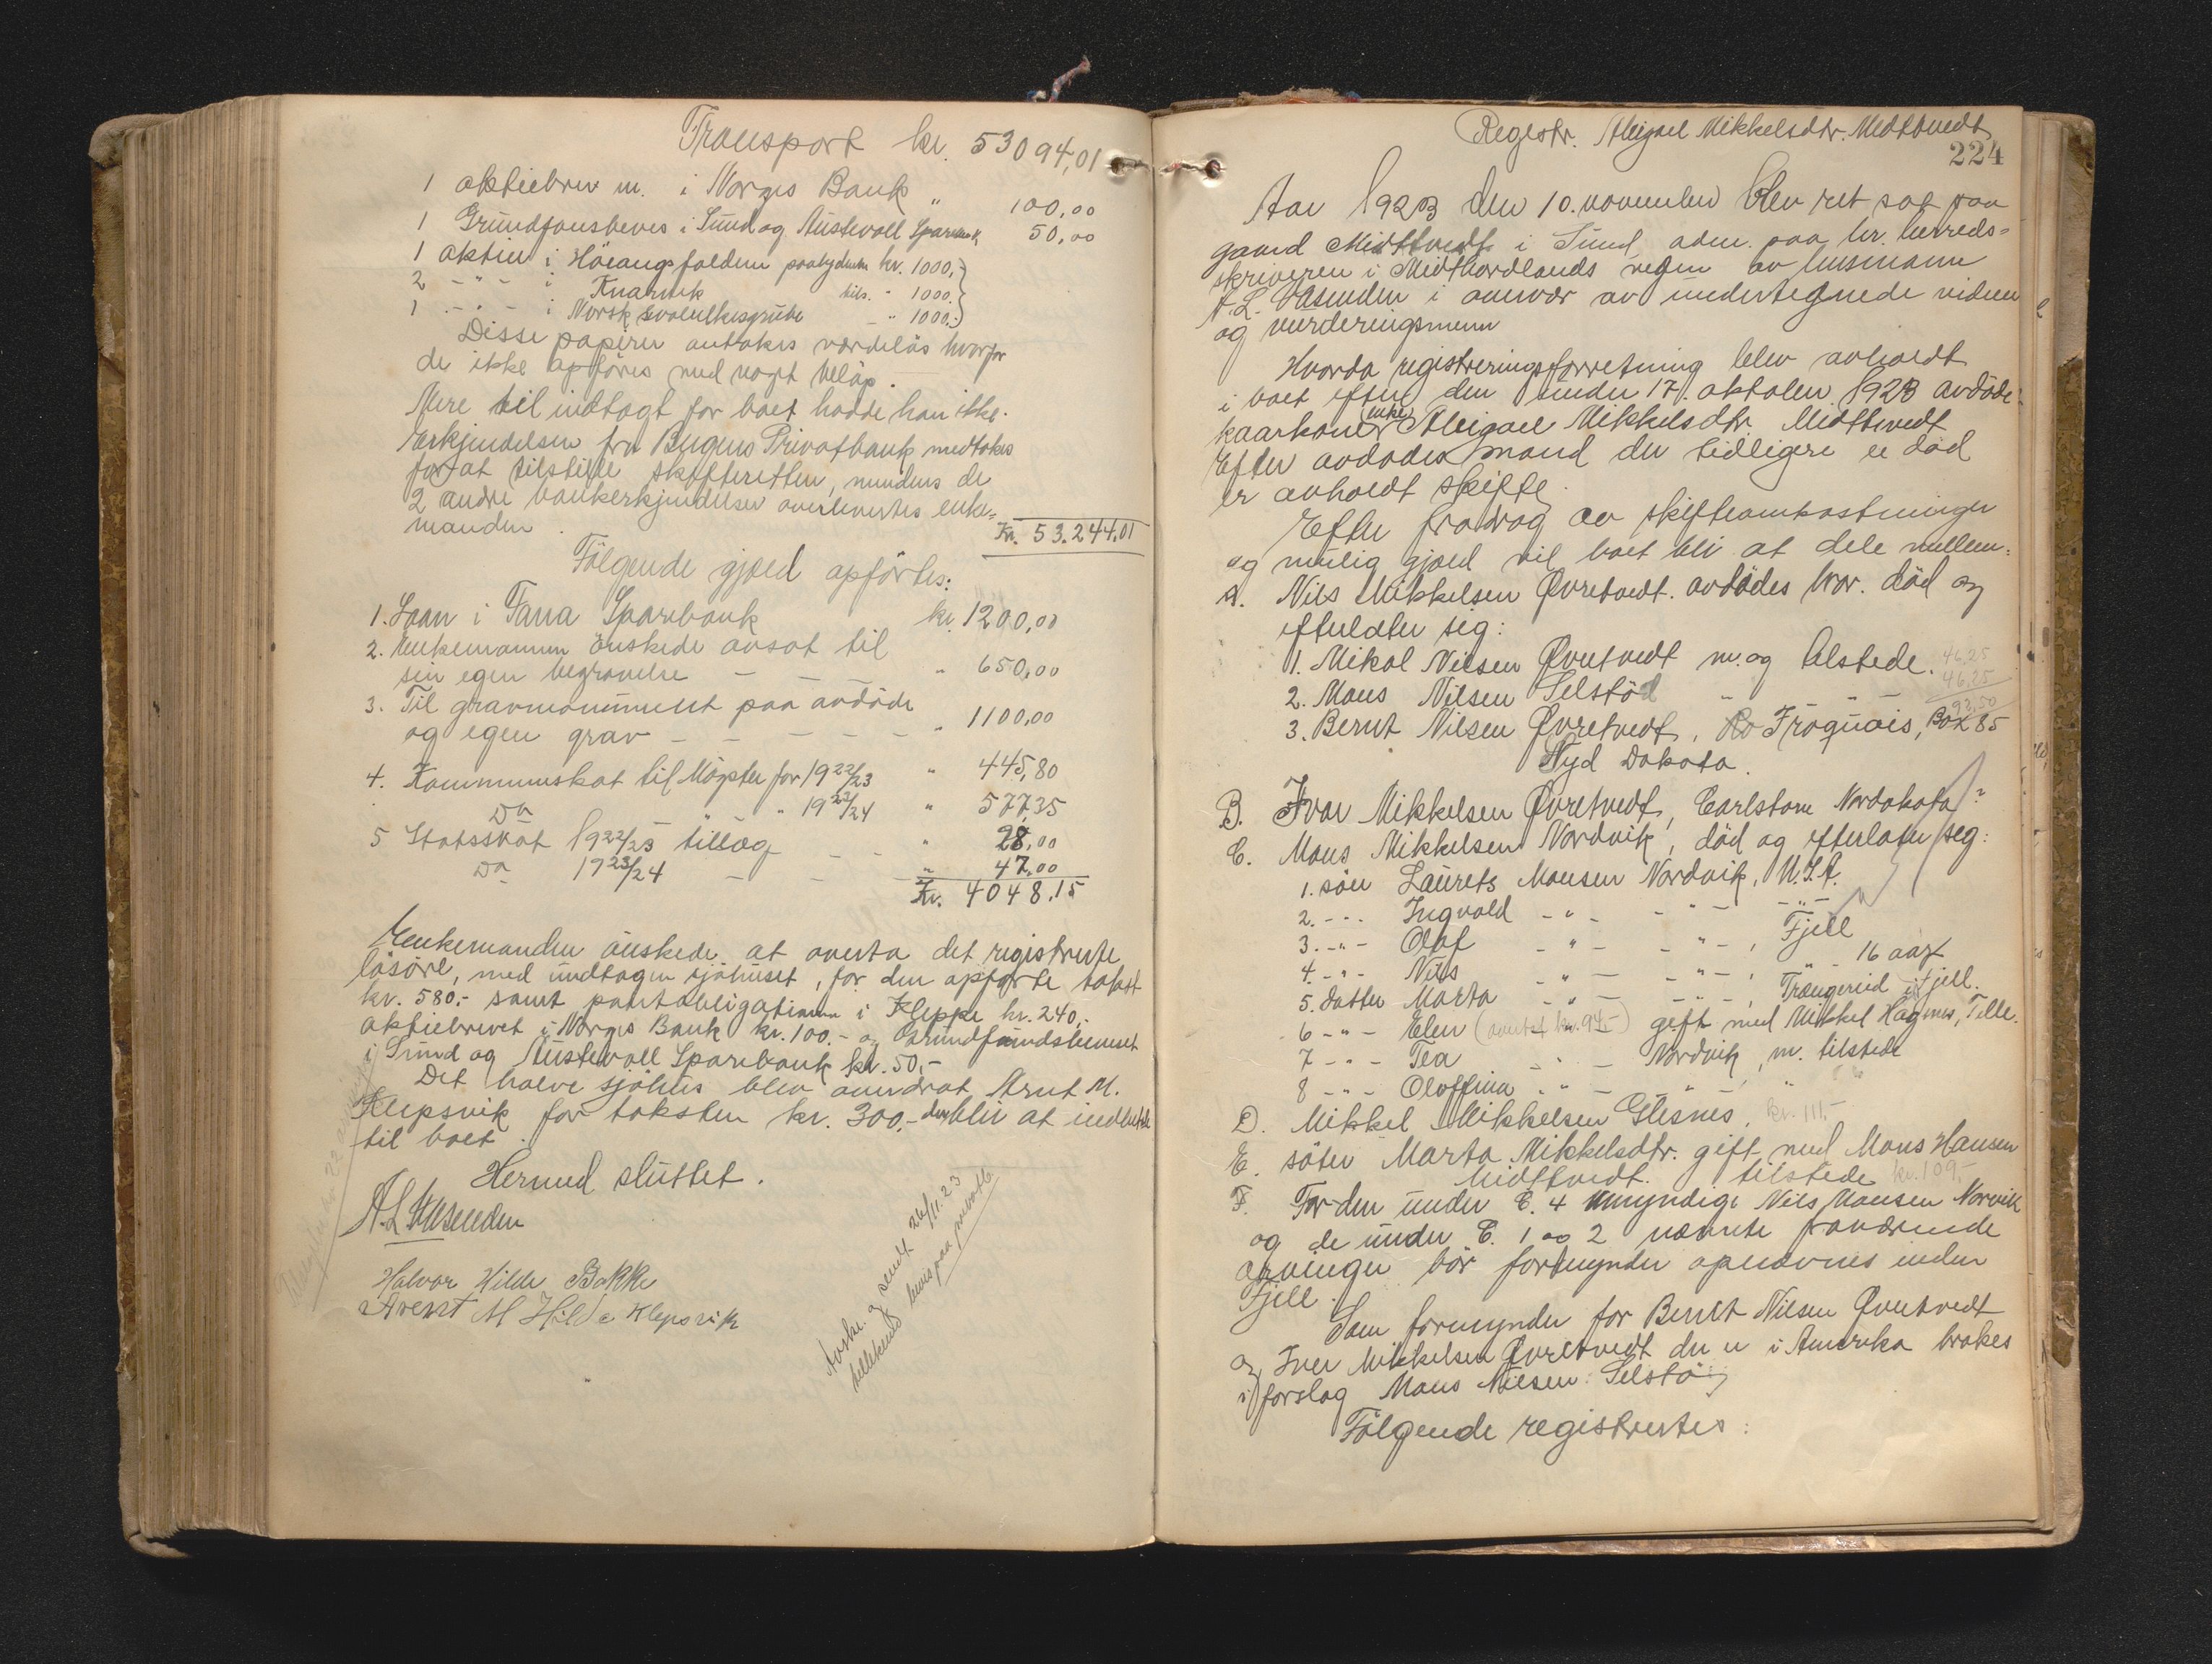 Transport kr. 53094,01
1 aktiebrev m. i Norges Bank " 100,00
1 Grundfonsbevis i Sund og Austevoll Sparebank 50,00
1 aktie i Höiangsfaldene paalydende kr. 1000,-
2 - " - i Knarvik tils. " 1000.-
1 - " - i Norsk svovelkisgrube - " 1000.-
Disse papirer antokes værdilös hvorfor
de ikke opföres med noget belöp.
Mere til indtægt for boet hadde han ikke.
Erkjendelsen fra Bergens Privatbank medtokes
for at tilstille skifteretten, mendens de
2 andre bankerkjendelser overlevertes enke-
manden. Kr. 53.244,01
Fölgende gjæld opförtes:
1. Laan i Fana Sparebank kr. 1200,00
2. Enkemannen önskede avsat til
sin egen begravelse - - - " 650,00
3. Til gravmonument paa avdöde
og egen grav - - - - - " 1100,00
4. Kommuneskat til Mögster for 1922/23 " 445,80
Do " " 1923/24 " 577,35
5 Statsskat 1922/23 tillæg - - " 28,00
Do 1923/24 - - - " 47,00
Kr. 4048,15
Enkemanden önskede at overta det registrerte
lösöre, med undtagen sjöhuset, for den opförte takst
kr. 580,- samt pantobligationen i Kleppe kr. 240,-
aktiebrevet i Norges Bank kr. 100.- og Grundfundsbeviset
i Sund og Austevoll Sparebank kr. 50,-
Det halve sjöhus blev overdrat Arnt M.
Klepsvik for taksten kr. 300,- der blir at indbetale
til boet.
Hermed sluttet.
A. L. Vasenden
Halvor Hilde Bakke
Arent M Hilde Klepsvik
Avskr. og sendt 26/11.23
bevis paa
Registr. Abigael Mikkelsdtr. Midttvedt
224
Aar 1923 den 10. november blev ret sat paa
gaard Midttvedt i Sund, adm. paa hr. herreds-
skriveren i Midthordlands vegne av lensmann
A. L. Vasenden i overvær av undertegnede vidner
og vurderingsmenn
Hvorda registreringsforretning blev avholdt
i boet efter den under 17. oktober 1923 avdöde
kaarkone (enke) Abigael Mikkelsdtr Midttvedt
Efter avdödes mand der tidligere er död
er avholdt skifte.
Efter fradrag av skifteomkostninger
og mulig gjæld vil boet bli at dele mellem:
A. Nils Mikkelsen Øvretvedt. avdödes bror. död og
efterlater seg:
1. Mikal Nilsen Øvretvedt m. og tilstede. 46,25
2. Mons Nilsen Selstöd " " - 46,25
92,50
3. Bernt Nilsen Øvretvedt, Ro Iroquois, Box 85
Syd Dakota.
B. Ivar Mikkelsen Øvretvedt, Carlstone Nordakota?
C. Mons Mikkelsen Nordvik, död og efterlater seg:
1. sön Laurets Monsen Nordvik, U.S.A.
2. - " - Ingvald - " - - " - - " -
3. - " - Olaf - " - - " -, Fjell
4. - " - Nils " - - " -, " - 16 aar
5. datter Marta - " - - " -, Trengereid i Fjell.
6 - " - Elen (avertet kr. 94.-) gift med Mikkel Hagenes, Telle.
7 - " - Tea - " - Nordvik, m. tilstede
8 - " - Oloffina - " - " - "
D. Mikkel Mikkelsen Glesnes, kr. 111.-
E. söster Marta Mikkelsdtr. gift med Mons Hansen
Midttvedt. tilstede kr. 109,-
F. For den under C. 4 umyndige Nils Monsen Norvik
og de under C. 1 og 2 nævnte fraværende
arvinger bör formynder opnævnes inden
Fjell.
Som formynder for Bernt Nilsen Øvretvedt
og Iver Mikkelsen Øvretvedt der er i Amerika brakes
i forslag Mons Nilsen Selstö
Fölgende registrertes: